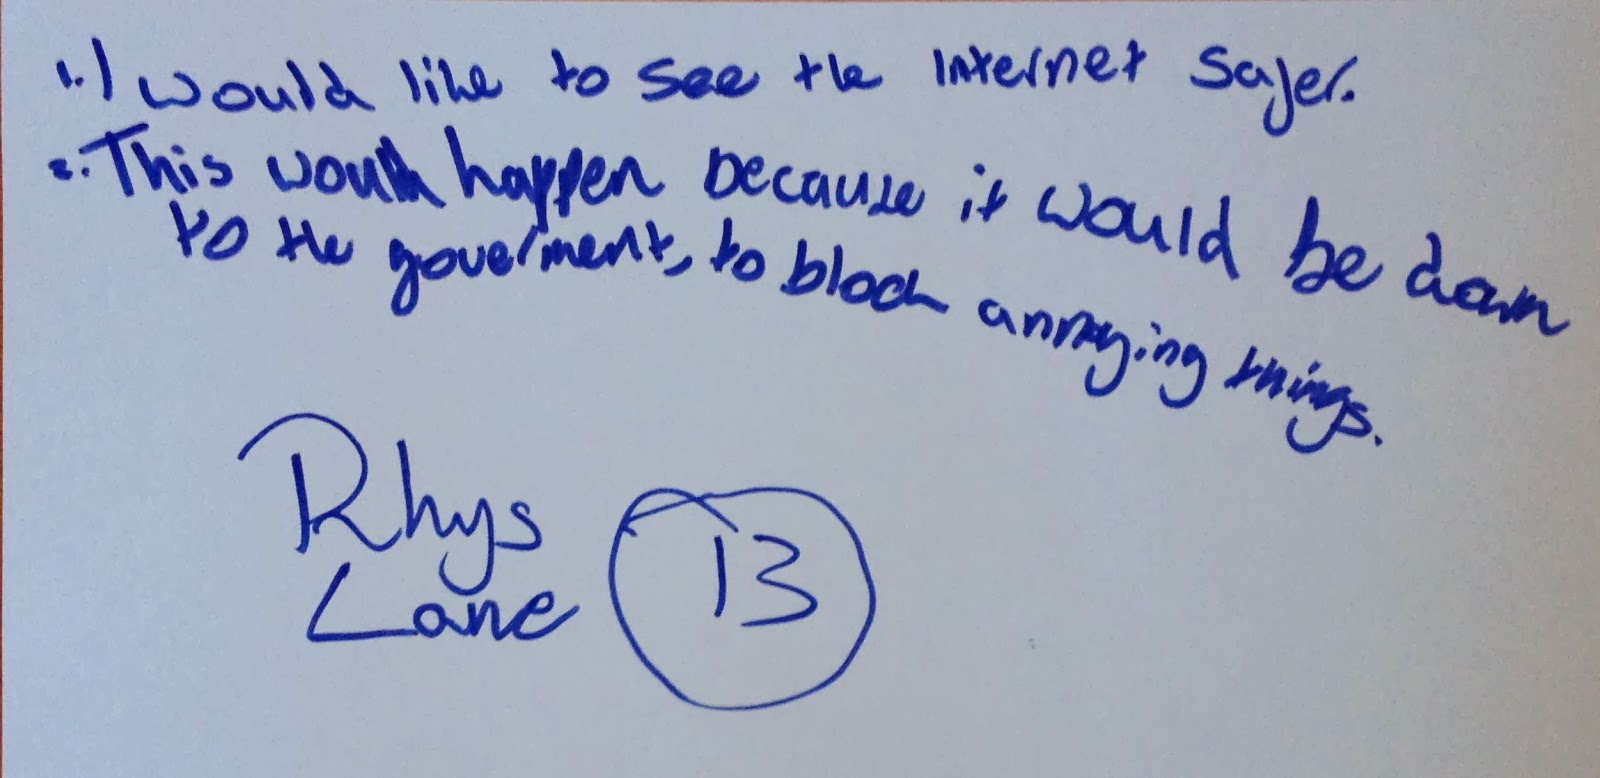 1. I would like to see the internet safer.
2. This would happen because it would be down
to the goverment, to block annoying things.
Rhys
Lane
13